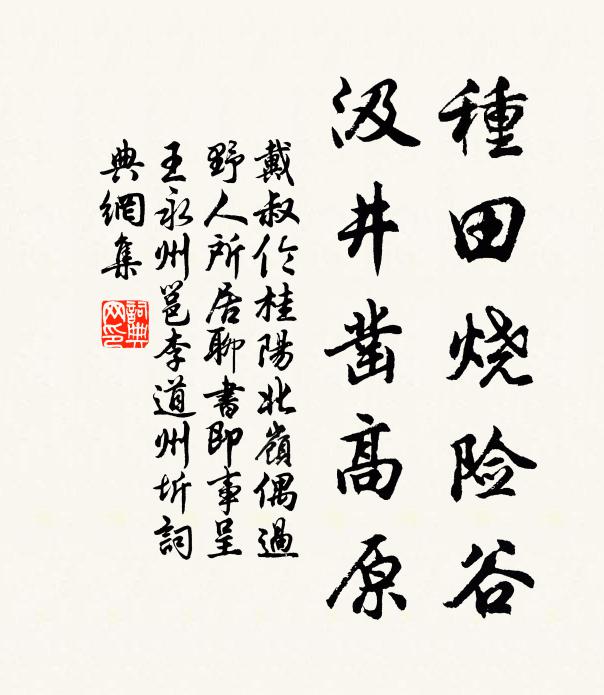 種田烧险谷
汲井凿高原
戴叔伦桂陽北嶺偶過
野人所居聊書即事呈
王永州邕李道州圻詞
典網集
詞典
网印